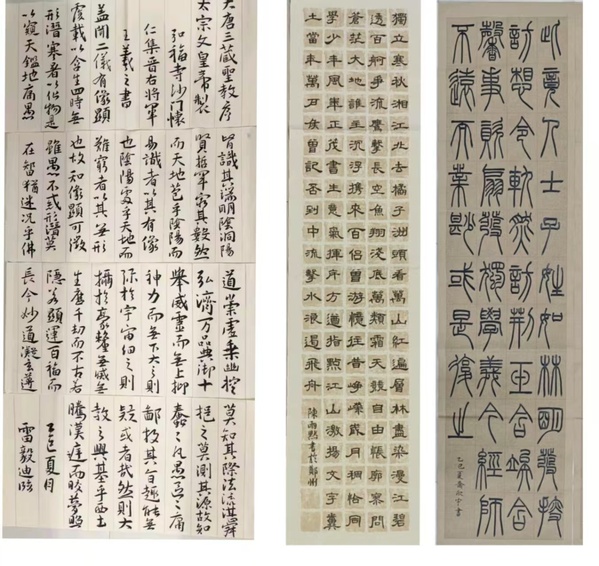 大唐三藏聖教序
太宗文皇帝製
弘福寺沙门懷
仁集晋右將軍
王羲之書
盖聞二儀有像顯
覆載以含生四時無
形潛寒暑以化物是
以窺天鑑地庸愚
皆識其端明陰洞陽
賢哲罕窮其數然
而天地苞乎陰陽而
易識者以其有像
也陰陽處乎天地而
難窮者以其無形
也故知像顯可徵
雖愚不惑形潛莫
在智猶迷况乎佛
道崇虛乘幽控
弘濟万品典御十
舉威靈而無上抑
神力而無下大之則
际於宇宙细之則
攝於豪釐無滅無
生歷千劫而不古若
隱若顯運百福而
長今妙道凝玄遵
莫知其際法流湛寂
挹之莫測其源故知
蠢蠢凡愚區區庸
鄙投其旨趣能無
疑或者哉然則大
教之興基乎西土
騰漢庭而皎夢照
乙巳夏月
雷毅迪临
獨立寒秋湘江北去橘子洲頭看萬山紅遍層林盡染漫江碧
透百舸爭流鷹擊長空魚翔淺底萬類霜天競自由悵寥廓問
蒼茫大地誰主沉浮攜來百侣曾游憶往昔崢嶸歲月稠恰同
學少年風華正茂書生意氣揮斥方遒指點江山激揚文字糞
土當年萬户侯曾記否到中流擊水浪遏飛舟
陳雨然書於鄭州
此竟介士子姓如林明發搜
訪想令軌無訪荆玉含
馨事顯扇發獨學義今經師
不遠而業尠或是復之
乙巳夏喬欣宇書